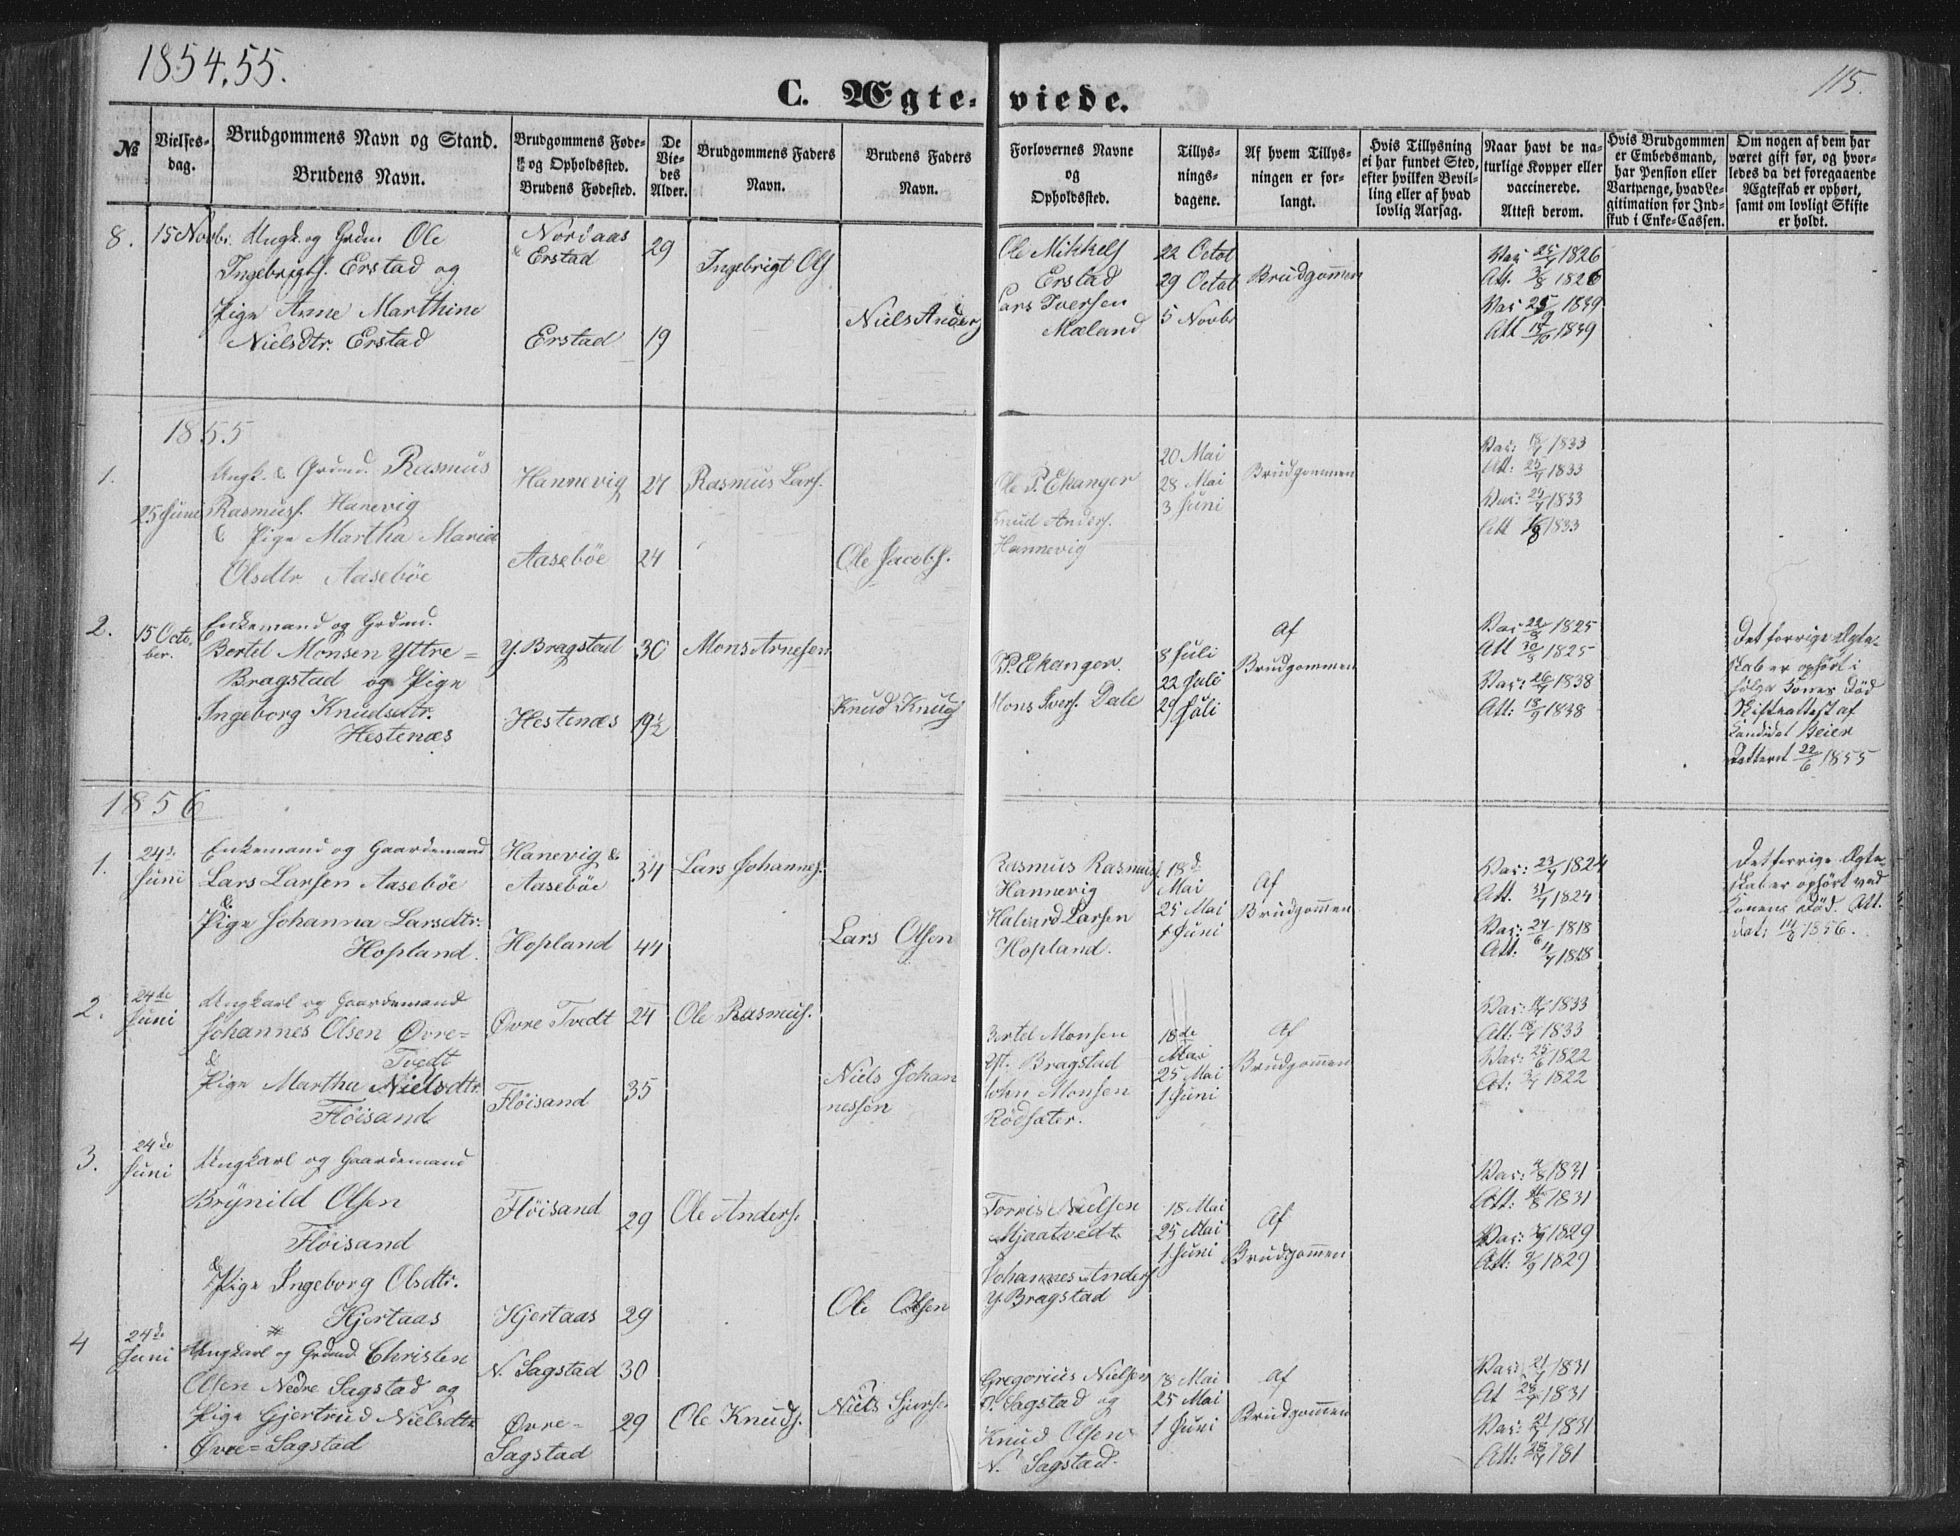 1854.55.
115.
C. Ægte-viede.
№
Vielses-
dag.
Brudgommens Navn og Stand.
Brudens Navn.
Brudgommens Føde-
og Opholdssted.
Brudens Fødested.
De
Vie-
des
Alder.
Brudgommens Faders
Navn.
Brudens Faders
Navn.
Forlovernes Navne
og
Opholdssted.
Tillys-
nings-
dagene.
Af hvem Tillys-
ningen er for-
langt.
Hvis Tillysning
ei har fundet Sted,
efter hvilken Bevil-
ling eller af hvad
lovlig Aarsag.
Naar havt de na-
turlige Kopper eller
vaccinerede.
Attest derom.
Hvis Brudgommen
er Embedsmand,
har Pension eller
Vartpenge, hvad Le-
gitimation for Ind-
skud i Enke-Cassen.
Om nogen af dem har
været gift før, og hvor-
ledes da det foregaaende
Ægteskab er ophørt,
samt om lovligt Skifte
er holdt.
8. 15 Novbr. Ungk. og Grdm Ole
Ingebrigts. Erstad og
Pige Anne Marthine
Nielsdtr. Erstad
Nordaas
& Erstad
Erstad
29
19
Ingebrigt Ols
Niels Anders
Ole Mikkels
Erstad
Lars Iversen
Mæland
22 Octob
29 Octob
5 Novbr
Brudgommen
Vac 25/7 1826
Att. 3/8 1826
Vac 25/9 1839
Att 15/10 1839
1855
1.
25 Juni
Ungk. & Grdmd. Rasmus
Rasmuss. Hanevig
& Pige Martha Maria
Olsdtr Aasebøe
Hannevig
Aasebøe
27
24
Rasmus Lars.
Ole Jacobs.
Ole P. Ekanger
Knud Anders.
Hannevig
20 Mai
28 Mai
3 Juni
Brudgommen
Vac: 18/7 1833
Att: 25/7 1833
Vac: 29/7 1833
Att 1833
2.
15 Octo-
ber.
Enkemand og Grdmd.
Bertel Monsen Yttre=
Bragstad og Pige
Ingeborg Knudsdtr.
Hestenæs
Y. Bragstad
Hestenæs
30
19½
Mons Arnesen
Knud Knuds
P. Ekanger.
Mons Ivers. Dale
8 Juli
22 Juli
29 Juli
Af
Brudgommen
Vac 22/8 1825
Att 1825
Vac: 26/7 1838
Att: 15/9 1838
Det forrige Ægte-
skab er ophørt i
følge Konens Død
Skifteattest af
Kandidat Beier
Datteret 22/6 1855
1856
1.
24de
Juni
Enkemand og Gaardemand
Lars Larsen Aasebøe
&
Pige Johanna Larsdtr.
Hopland.
Hanevig &
Aasebøe
Hopland
34
44
Lars Johannes.
Lars Olsen
Rasmus Rasmuss
Hannevig
Halvard Larsen
Hopland.
18d
Mai
25 Mai
1 Juni
Af
Brudgommen
Vac: 23/7 1824
Att. 31/7 1824
Vac: 27/6 1818
Att. 4/7 1818
Det forrige Ægte-
skab er ophørt ved
Konens Død. Att.
dat: 1856.
2.
24de
Juni
Ungkarl og Gaardemand
Johannes Olsen Øvre=
& Tvedt
Pige Martha Nielsdtr.
Fløisand
Øvre Tvedt
Fløisand
24
35
Ole Rasmus.
Niels Johan
nessen
Bertel Monsen
Yt. Bragstad
John Monsen
Rödsæter.
18de
Mai
25 Mai
1 Juni
Af
Brudgommen
Vac: 1833
Att: 18/7 1833
Vac: 25/6 1822
At: 3/7 1822
3.
24de
Juni
Ungkarl og Gaardemand
Brÿnild Olsen
Fløisand
& Pige Ingeborg Olsdtr.
Hjertaas
Fløisand
Hjertaas
29
29
Ole Anders.
Ole Olsen
Torris Nielsen
Mjaatvedt
Johannes Anders
Y. Bragstad
18 Mai
25 Mai
1 Juni
Af
Brudgommen
Vac: 4/8 1831
Att: 1831
Vac: 1829
Att: 1829
4
24de
Juni
Ungkarl og Grdmd Christen
Olsen Nedre Sagstad og
Pige Gjertrud Nielsdtr
Øvre=Sagstad
N. Sagstad
Øvre=
Sagstad
30
29
Ole Knuds.
Niels
Gregorius Nielsen
Ø. Sagstad og
Knud Olsen
N. Sagstad.
8 Mai
25 Mai
1 Juni
Af
Brudgommen
Vac: 21/7 1831
At 1831
Vac: 21/7 1831
Att: 28/7 181